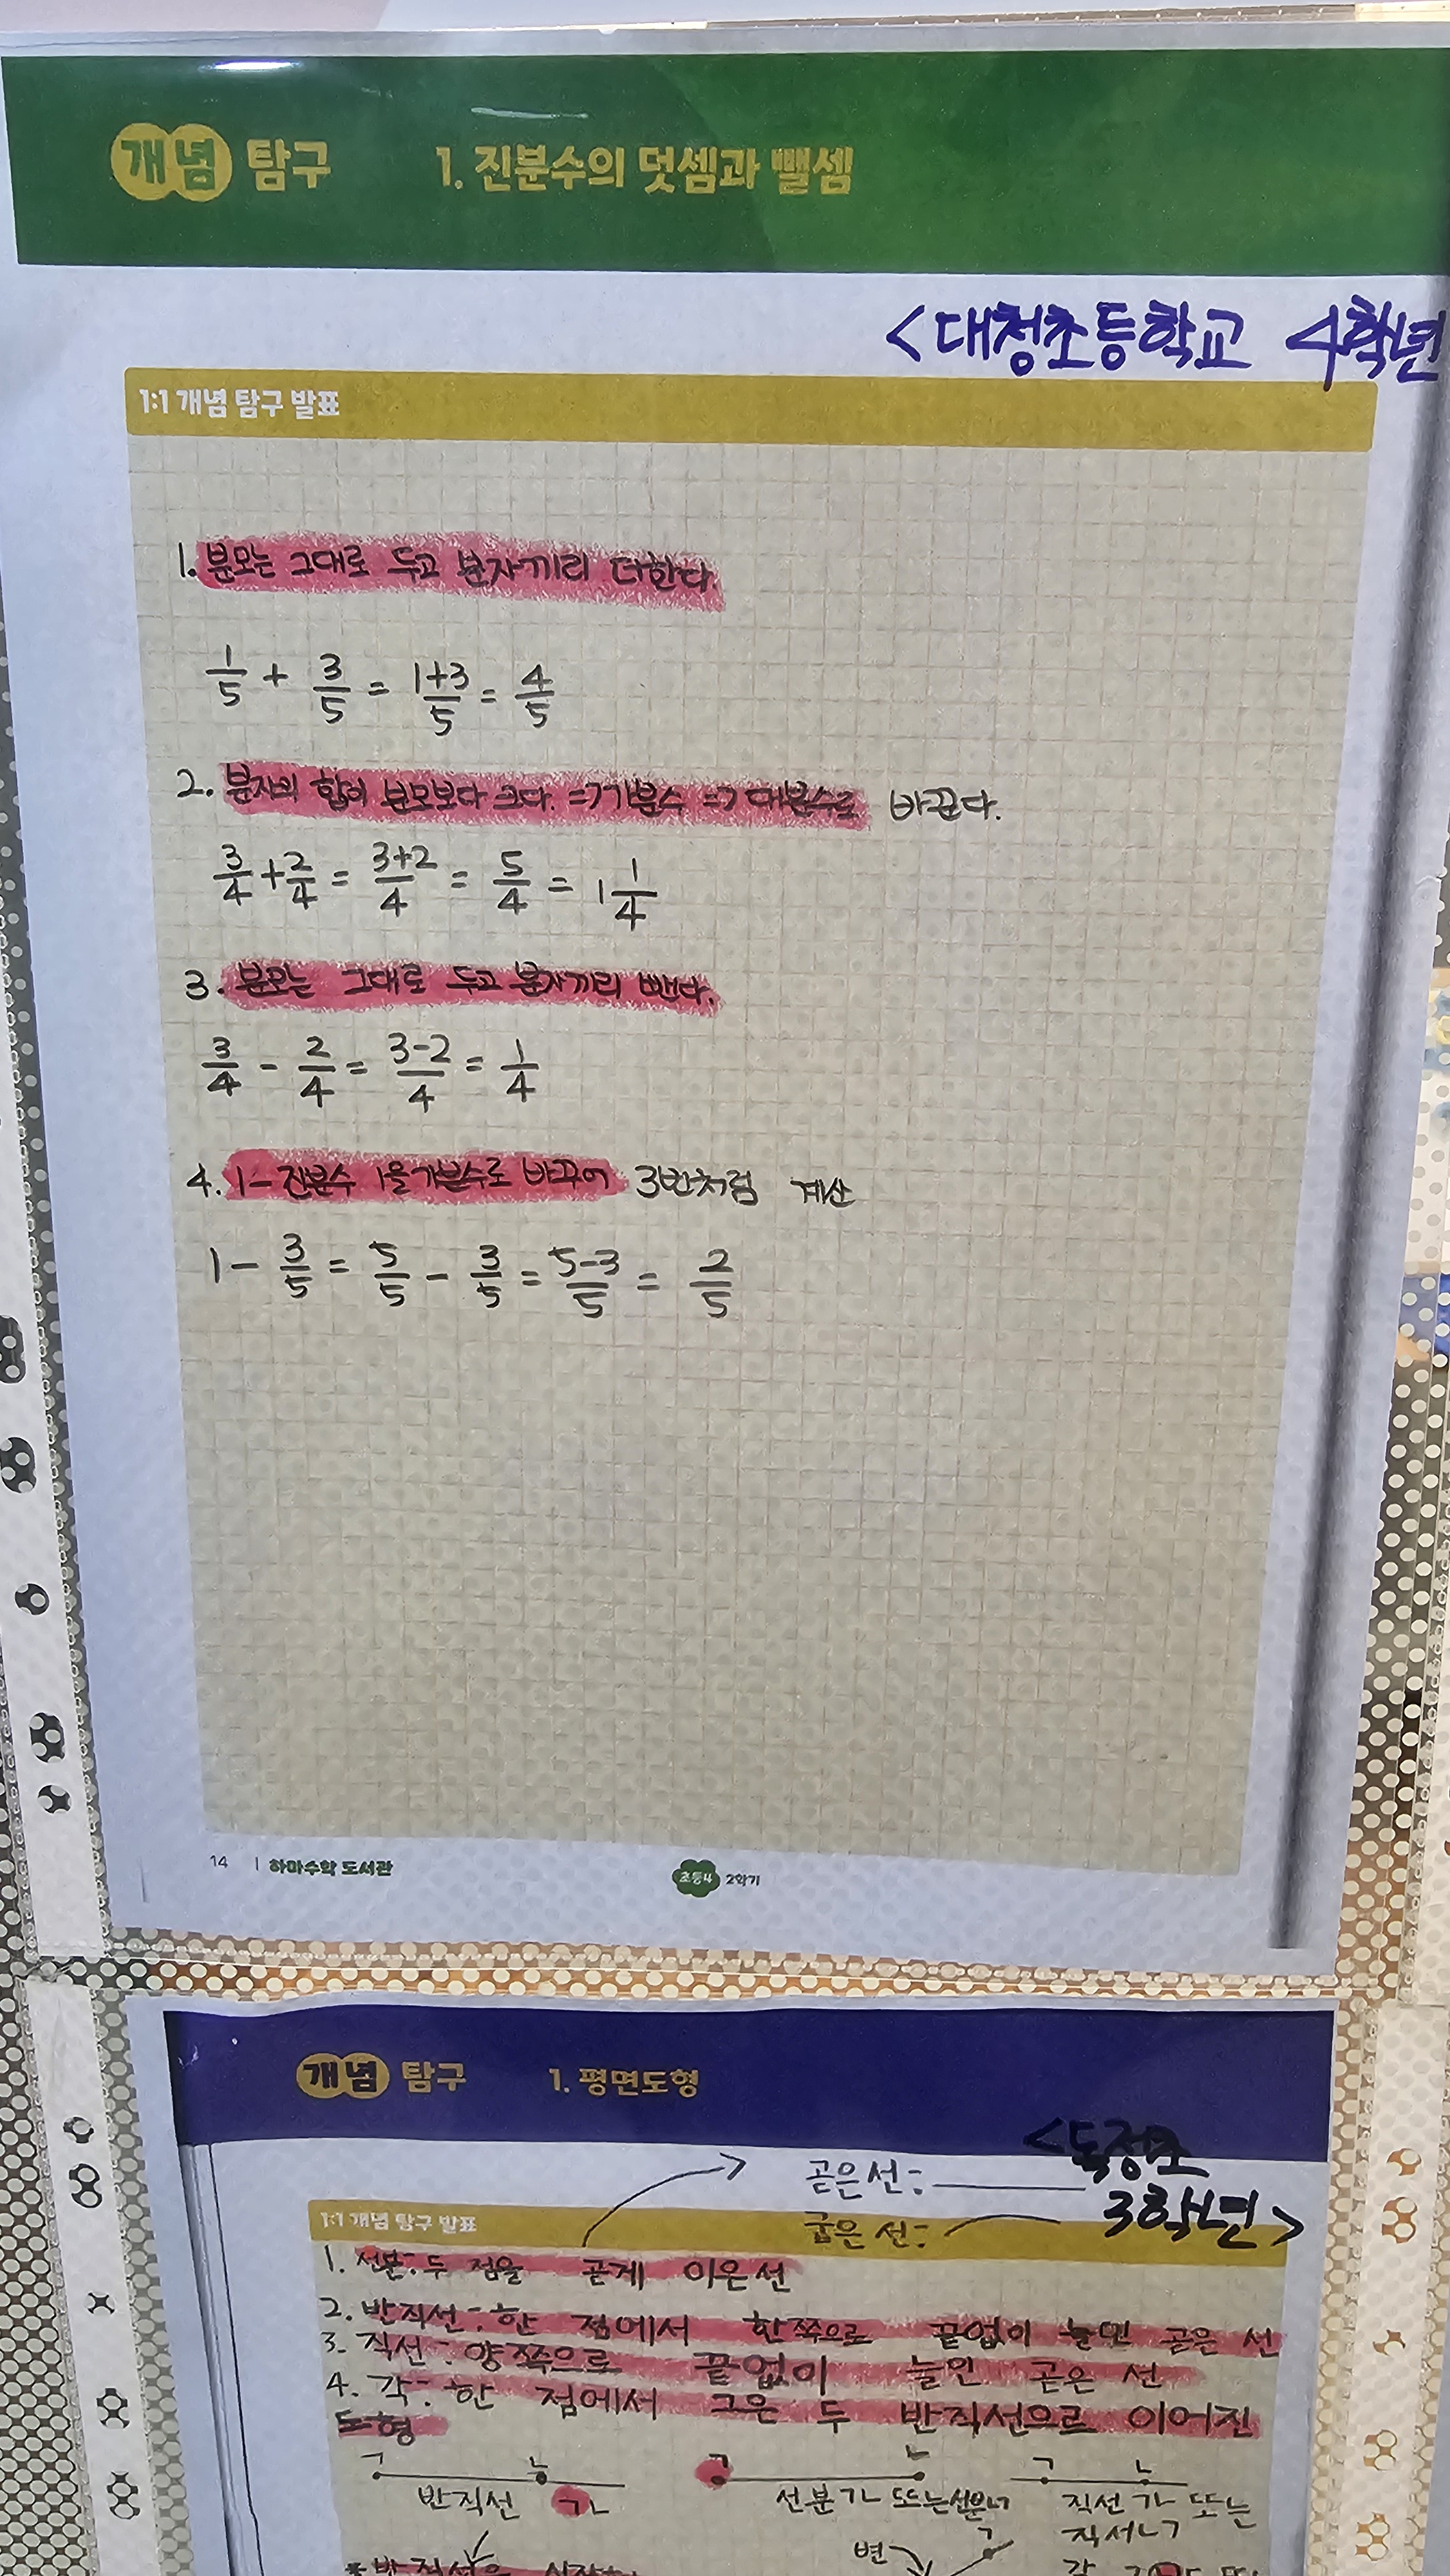 개념 탐구 1. 진분수의 덧셈과 뺄셈
<대청초등학교 4학년
1:1 개념 탐구 발표
1. 분모는 그대로 두고 분자끼리 더한다.
1/5 + 3/5 = 1+3/5 = 4/5
2. 분자의 합이 분모보다 크다. => 가분수 => 대분수로 바꾼다.
3/4 + 2/4 = 3+2/4 = 5/4 = 1 1/4
3. 분모는 그대로 두고 분자끼리 뺀다.
3/4 - 2/4 = 3-2/4 = 1/4
4. 1- 진분수 1을 가분수로 바꾸어 3번처럼 계산
1 - 3/5 = 5/5 - 3/5 = 5-3/5 = 2/5
14 | 하마수학 도서관 초등4 2학기
개념 탐구 1. 평면도형
<도정초
3학년>
곧은 선:
굽은 선:
1:1 개념 탐구 발표
1. 선분: 두 점을 곧게 이은 선
2. 반직선: 한 점에서 한쪽으로 끝없이 늘인 곧은 선
3. 직선: 양쪽으로 끝없이 늘인 곧은 선
4. 각: 한 점에서 그은 두 반직선으로 이어진
도형
ㄱ ㄴ ㄱ ㄴ ㄱ ㄴ
반직선 ㄱㄴ 선분 ㄱㄴ 또는 선분ㄴㄱ 직선 ㄱㄴ 또는
직선ㄴㄱ
변 ㄱ
*반직선은